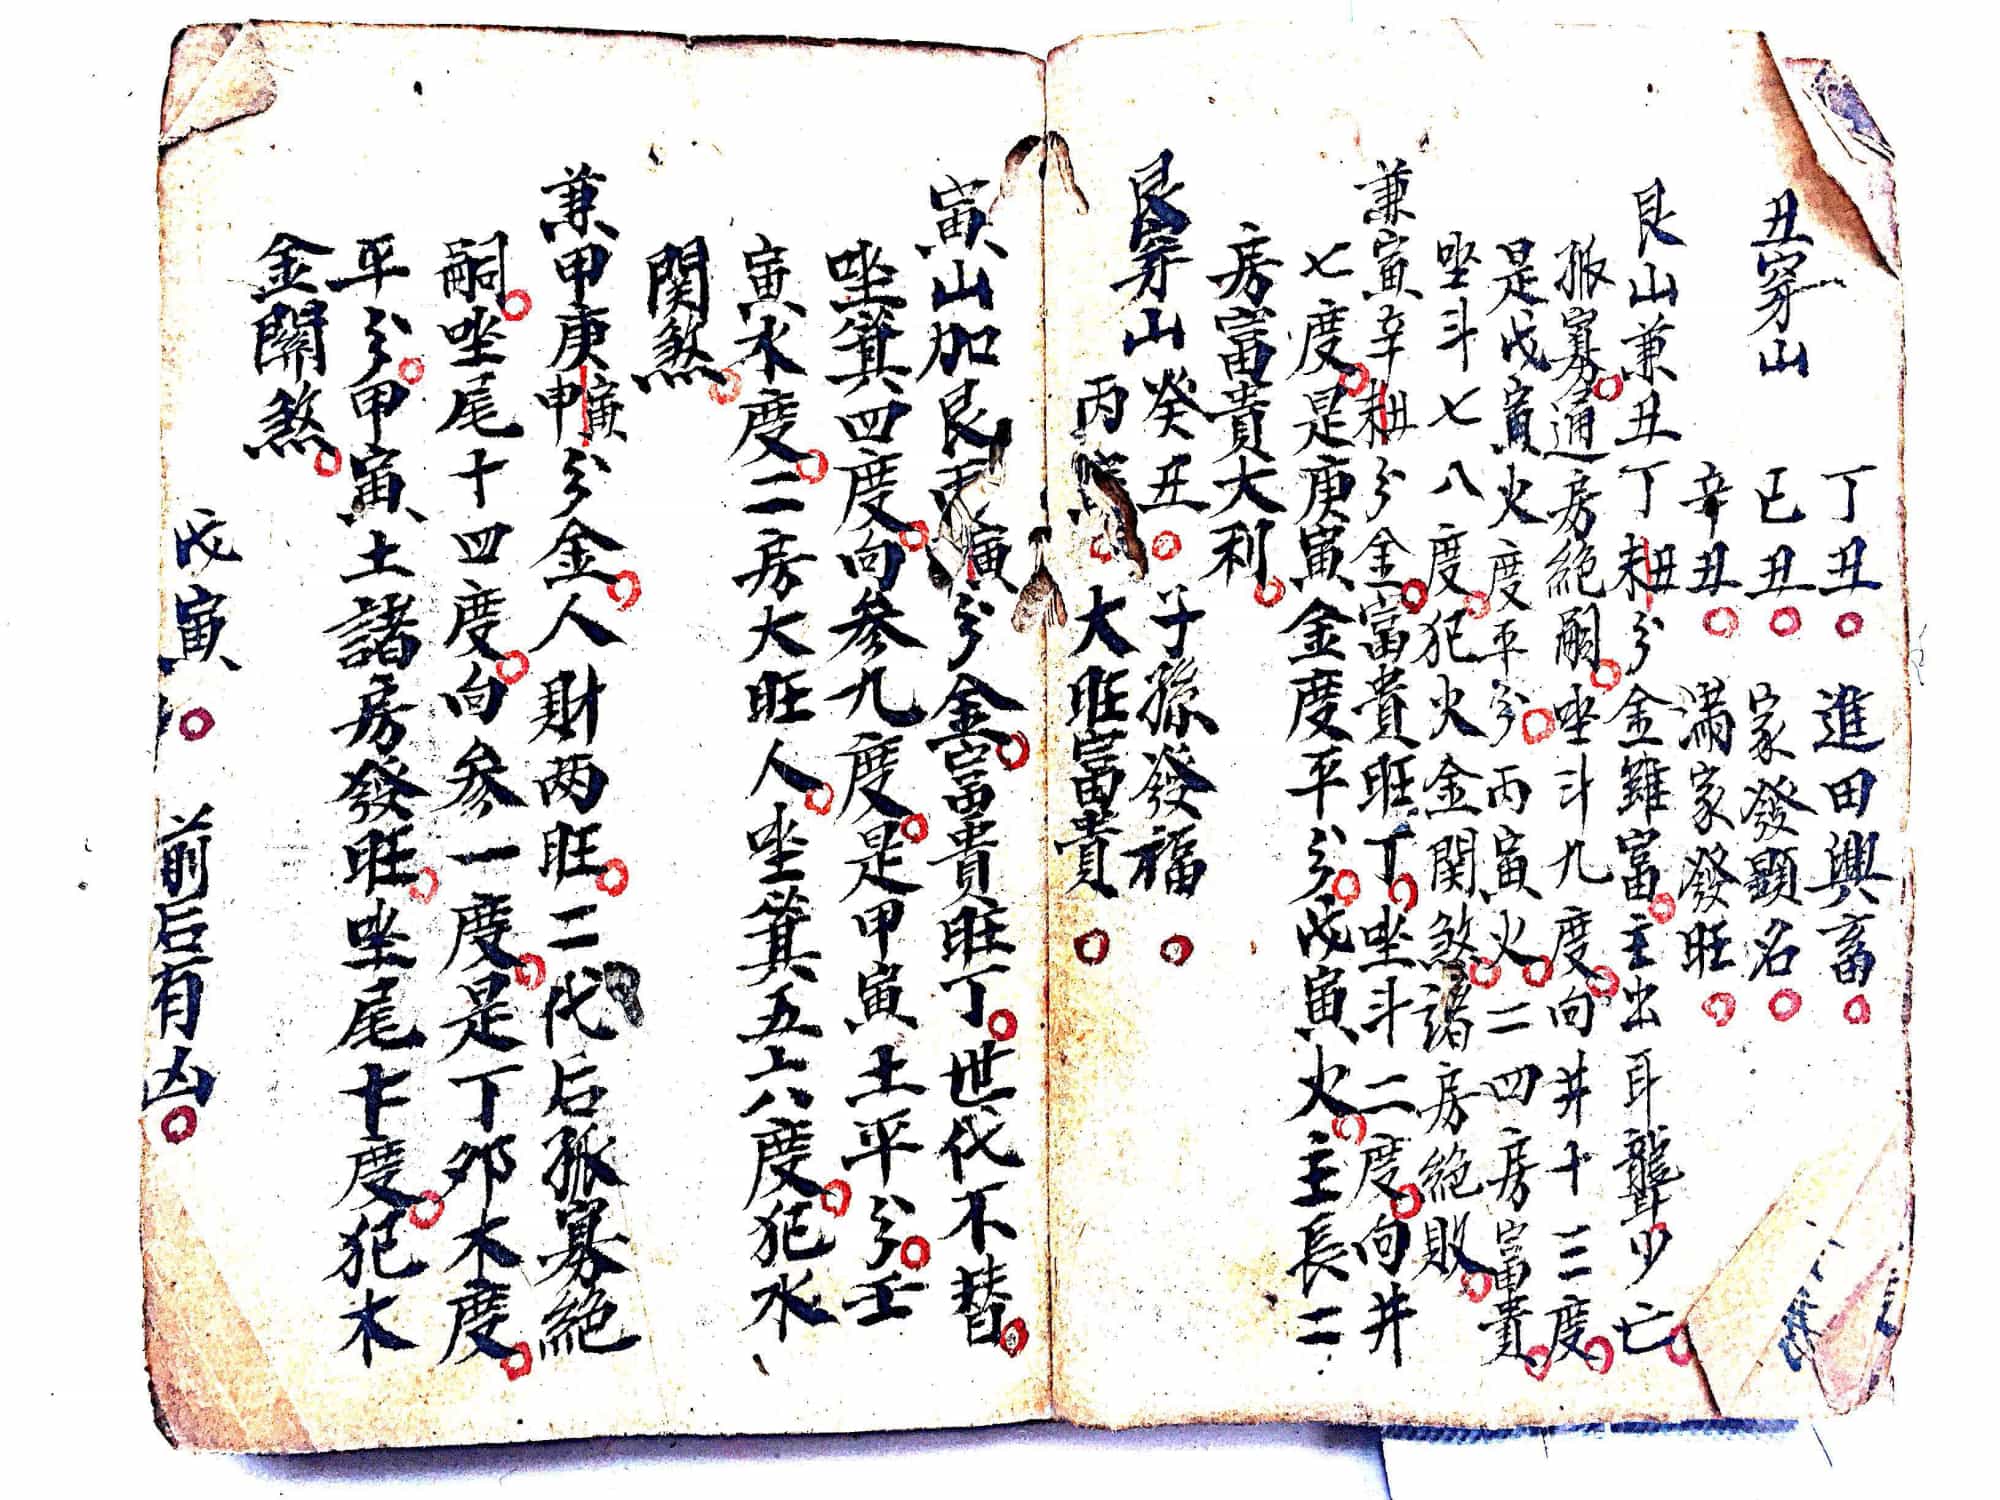 丁丑 進田興畜
丑穿山 己丑 家發顯名
辛丑 滿家發旺
艮山兼丑丁未丑分金雖富主出耳聾少亡
孤寡通房絕嗣坐斗九度向井十三度
是戊寅火度平分丙寅火二四房富貴
坐斗七八度犯火金関煞諸房絕敗
兼寅辛未丑分金富貴旺丁坐斗二度向井
七度是庚寅金度平分戊寅火主長二
房富貴大利
艮穿山癸丑 子孫發福
丙 大旺富貴
寅山加艮 寅分金富貴旺丁世代不替
坐箕四度向參九度是甲寅土平分壬
寅木度二房大旺人坐箕五六度犯水
関煞
兼甲庚申寅分金人財两旺二代后孤寡絕
嗣坐尾十四度向參一度是丁卯木度
平分甲寅土諸房發旺坐尾十度犯木
金關煞
戊寅 前后有凶